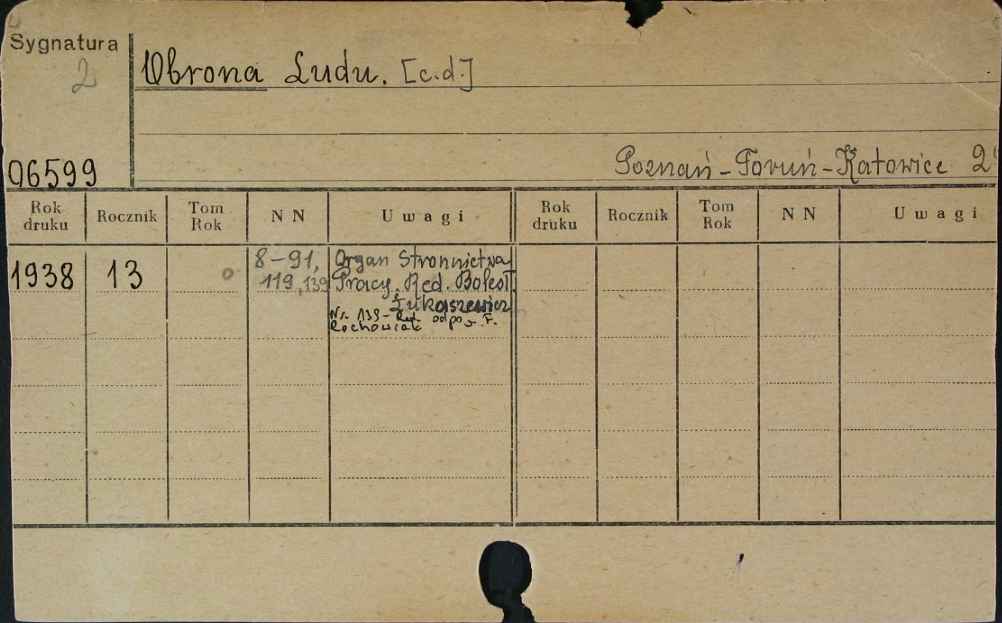 Sygnatura
2
Obrona Ludu. [c.d.]
Poznań-Toruń-Katowice 2
06599
Rok druku Rocznik Tom Rok N N Uwagi Rok druku Rocznik Tom Rok N N Uwagi
1938 13 8-91, Organ Stronnictwa
119, 139 Pracy. Red. Bolesł.
Łukaszewicz
Nr. 139- Red. odpow. F.
Rochowiak